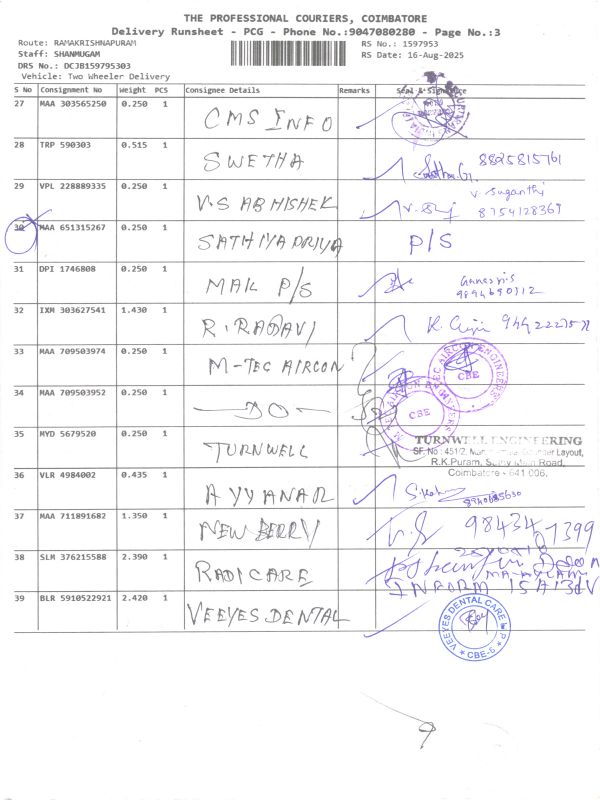 THE PROFESSIONAL COURIERS, COIMBATORE
Delivery Runsheet - PCG - Phone No.:9047080280 - Page No.:3
Route: RAMAKRISHNAPURAM RS No.: 1597953
Staff: SHANMUGAM RS Date: 16-Aug-2025
DRS No.: DCJB159795303
Vehicle: Two Wheeler Delivery
S No Consignment No Weight PCS Consignee Details Remarks Seal & Signature
27 MAA 303565250 0.250 1 CMS INFO
28 TRP 590303 0.515 1 SWETHA 8825815761
29 VPL 228889335 0.250 1 V.S ABHISHEK V. Suganthi
8754128369
30 MAA 651315267 0.250 1 SATHIYAPRIYA P/S
31 DPI 1746808 0.250 1 MAK P/S
32 IXM 303627541 1.430 1
33 MAA 709503974 0.250 1 M-TEC AIRCON CBE
34 MAA 709503952 0.250 1 —DO— CBE
35 MYD 5679520 0.250 1 TURNWELL TURNWELL ENGINEERING
SF. No : 451/2, Layout,
R.K.Puram, Main Road,
Coimbatore - 641 006.
36 VLR 4984002 0.435 1 AYYANAR
37 MAA 711891682 1.350 1 NEW BERRY 98434
38 SLM 376215588 2.390 1 RADICARE
39 BLR 5910522921 2.420 1 VEEYES DENTAL VEEYES DENTAL CARE P
CBE-6